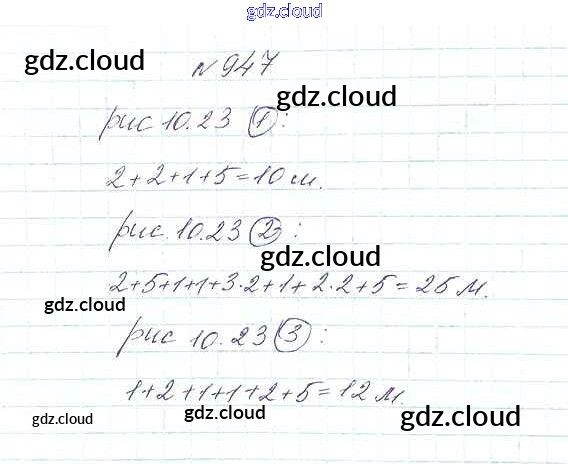 gdz.cloud
№947
gdz.cloud
gdz.cloud
рис 10.23 ①:
2+2+1+5=10 м.
рис. 10.23 ②:
gdz.cloud
2+5+1+1+3·2+1+2·2+5=25 м.
gdz.cloud
рис 10.23 ③:
1+2+1+1+2+5=12 м.
gdz.cloud
gdz.cloud
gdz.cloud